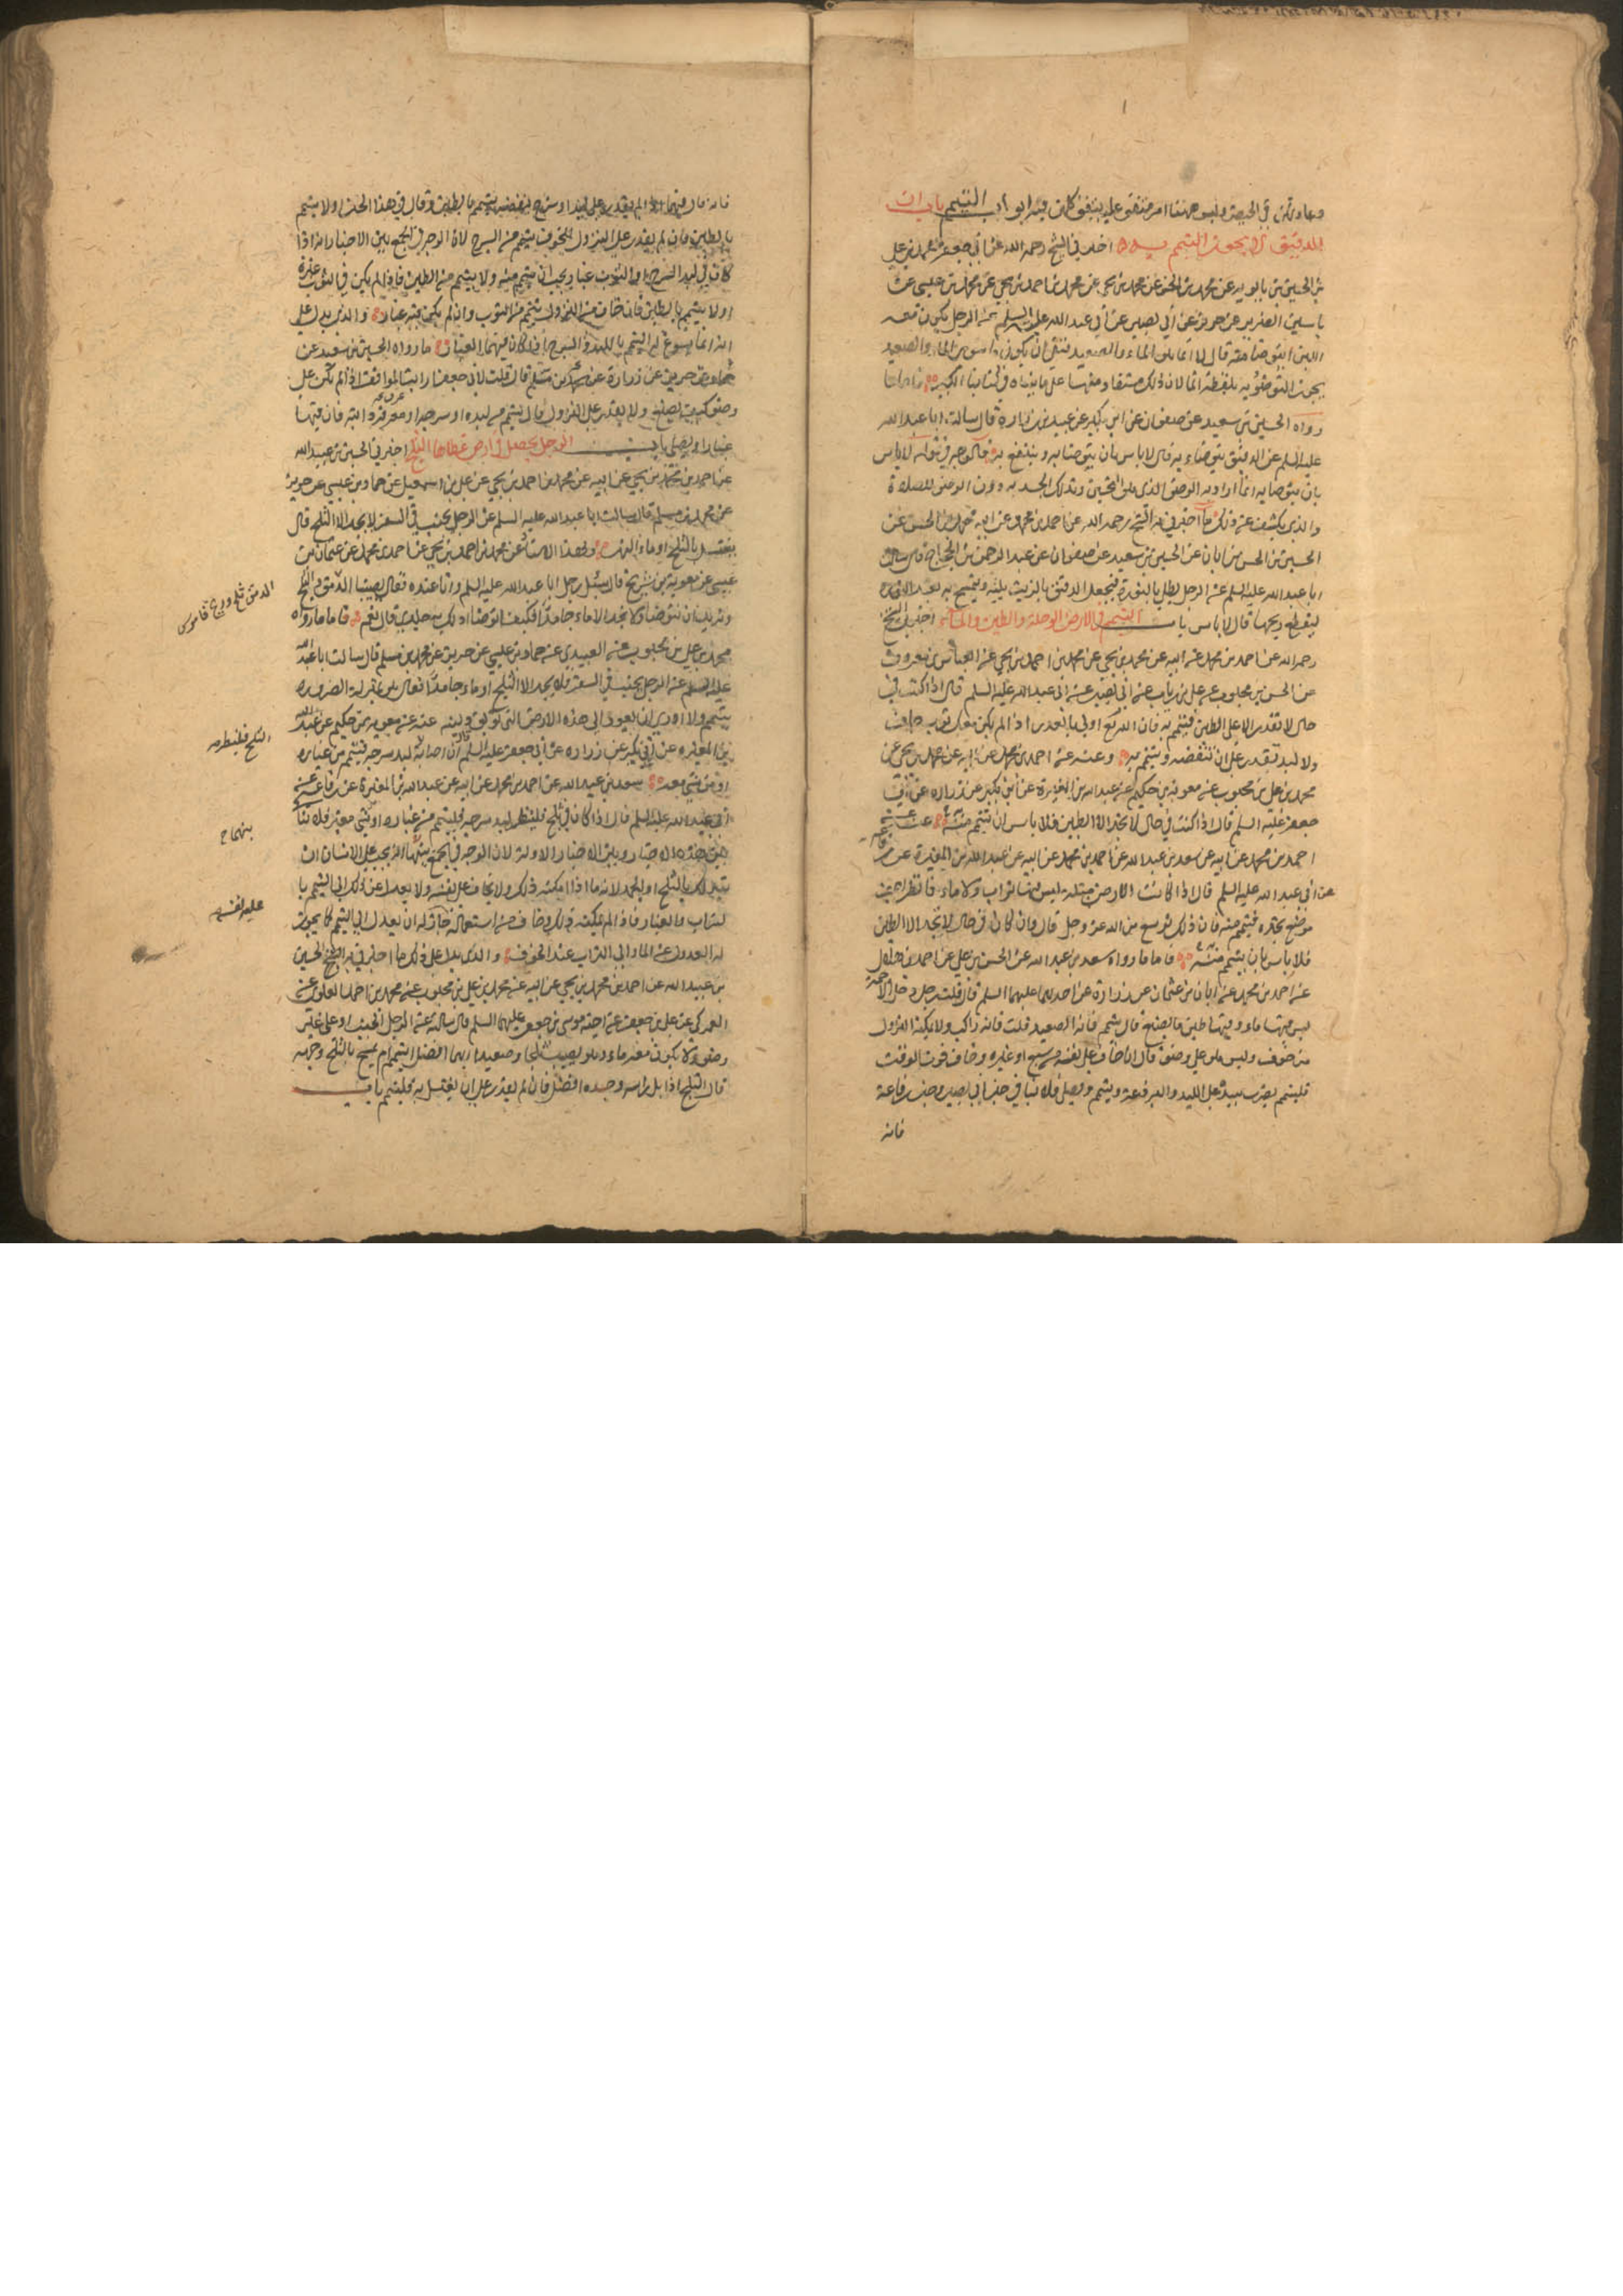 وهاوردتهن في الحيض وليس ههنا امر متفق عليه ينفق كان فيه ابواب التيمم باب ان
الدقيق لا يجوز التيمم به اخبرني الشيخ رحمه الله عن ابي جعفر محمد بن علي
بن الحسين بن بابويه عن محمد بن الحسن عن محمد بن يحيى عن محمد بن احمد بن يحيى عن محمد بن عيسى عن
ياسين الضرير عن حريز عن ابي بصير عن ابي عبد الله عليه السلم عن الرجل يكون معه
اللبن ايتوضأ منه قال لا انما هو الماء والصعيد فنفى ان يكون ما سوى الماء والصعيد
يجوز التوضؤ به بلفظة انما لان ذلك مستفاد منها على ما بيناه في كتابنا الكبير فاما ما
رواه الحسين بن سعيد عن صفوان عن ابن بكير عن عبيد بن زرارة قال سالت ابا عبد الله
عليه السلم عن الدقيق يتوضاء به قال لا باس بان يتوضا به وينتفع به فالوجه في قوله لا باس
بان يتوضا به انما اراد به الوضوء الذي هو التحسين وتدلك الجسد به دون الوضوء للصلاة
والذي يكشف عن ذلك ما اخبرني به الشيخ رحمه الله عن احمد بن محمد عن ابيه محمد بن الحسن عن
الحسين بن الحسن بن ابان عن الحسين بن سعيد عن صفوان عن عبد الرحمن بن الحجاج قال سالت
ابا عبد الله عليه السلم عن الرجل يطلي بالنورة فيجعل الدقيق بالزيت يلته ويتمسح به بعد النورة
ليقطع ريحها قال لا باس باب التيمم في الارض الوحلة والطين والماء اخبرني الشيخ
رحمه الله عن احمد بن محمد عن ابيه عن محمد بن يحيى عن محمد بن احمد بن يحيى عن العباس بن معروف
عن الحسن بن محبوب عن علي بن رياب عن ابي بصير عن ابي عبد الله عليه السلم قال اذا كنت في
حال لا تقدر الا على الطين فتيمم به فان الله تع اولى بالعذر اذا لم يكن معك ثوب جاف
ولا لبد تقدر على ان تنفضه وتتيمم به وعنه عن احمد بن محمد عن ابيه عن محمد بن يحيى عن
محمد بن علي بن محبوب عن معوية بن حكيم عن عبد الله بن المغيرة عن ابن بكير عن زرارة عن ابي
جعفر عليه السلم قال اذا كنت في حال لا تجد الا الطين فلا باس ان تتيمم منه عنه عن
احمد بن محمد عن ابيه عن سعد بن عبد الله عن احمد بن محمد عن ابيه عن عبد الله بن المغيرة عن رفاعه
عن ابي عبد الله عليه السلم قال اذا كانت الارض مبتلة ليس فيها تراب ولا ماء فانظر اجف
موضع تجده فتيمم منه فان ذلك توسع من الله عز وجل قال وان كان في حال لا تجد الا الطين
فلا باس بان يتيمم منه فاما ما رواه سعد بن عبد الله عن الحسن بن علي عن احمد بن هلال
عن احمد بن محمد عن ابان بن عثمان عن زرارة عن احدهما عليهما السلم قال قلت رجل دخل الاجمة
ليس فيها ماء وفيها طين ما يصنع قال يتيمم فانه الصعيد قلت فانه راكب ولا يمكنه النزول
من خوف وليس هو على وضوء قال ان خاف على نفسه من سبع او غيره وخاف فوت الوقت
فليتيمم يضرب بيده على اللبد والبرذعة ويتيمم ويصلي فلا ينافي خبر ابي بصير وخبر رفاعة
فانه
فانه قال فيهما اذا لم يقدر على لبد او سرج ينفضه يتيمم بالطين وقال في هذا الخبر اولا يتيمم
بالطين فان لم يقدر على النزول للخوف يتيمم من السرج لان الوجه في الجمع بين الاخبار انه اذا
كان في لبد السرج او الثوب غبار يجب ان يتيمم منه ولا يتيمم من الطين فاذا لم يكن في الثوب غبرة
اولا يتيمم بالطين فان خاف من النزول يتيمم من الثوب وان لم يكن فيه غبار والذي يدل على
انه انما يسوغ له التيمم باللبد والسرج اذا كان فيهما الغبار ما رواه الحسين بن سعيد عن
حماد عن حريز عن زرارة قال قلت لابي جعفر ارايت المواقف اذا لم يكن على
وضوء كيف يصنع ولا يقدر على النزول قال يتيمم من لبده او سرجه او معرفة دابته فان فيها
غبارا ويصلي باب الرجل يحصل في ارض غطاها الثلج اخبرني الحسين بن عبيد الله
عن احمد بن محمد بن يحيى عن ابيه عن محمد بن احمد بن يحيى عن علي بن اسمعيل عن حماد بن عيسى عن حريز
عن محمد بن مسلم قال سالت ابا عبد الله عليه السلم عن الرجل يجنب في السفر لا يجد الا الثلج قال
يغتسل بالثلج او ماء النهر وبهذا الاسناد عن محمد بن احمد بن يحيى عن احمد بن محمد عن عثمان بن
عيسى عن معوية بن شريح قال سئل رجل ابا عبد الله عليه السلم وانا عنده فقال يصيبنا الدمق والثلج
ونريد ان نتوضا ولا نجد الا ماء جامدا فكيف اتوضا ادلك به جلدي قال نعم فاما ما رواه
محمد بن علي بن محبوب عن العبيدي عن حماد بن عيسى عن حريز عن محمد بن مسلم قال سالت ابا عبد الله
عليه السلم عن الرجل يجنب في السفر فلا يجد الا الثلج او ماء جامدا فقال هو بمنزلة الضرورة
يتيمم ولا ارى ان يعود الى هذه الارض التي توبق دينه عنه عن معوية بن حكيم عن عبد الله
بن المغيره عن ابن بكير عن زراره عن ابي جعفر عليه السلم قال ان اصابه لبد سرجه فيتيمم من غباره
او من شيء معه سعد بن عبد الله عن احمد بن محمد عن ابيه عن عبد الله بن المغيرة عن رفاعة عن
ابي عبد الله عليه السلم قال اذا كان في ثلج فلينظر لبد سرجه فليتيمم من غباره او شيء مغبر فلا تنافي
بين هذه الاخبار وبين الاخبار الاولة لان الوجه في الجمع بينهما انه يجب على الانسان ان
يتدلك بالثلج او الجمد لانه ماء اذا امكنه ذلك ولا يخاف على نفسه ولا يعدل عن ذلك الى التيمم با
لتراب والغبار فاذا لم يمكنه ذلك وخاف من استعماله جاز له ان يعدل الى التيمم كما يجوز
له العدول عن الماء الى التراب عند الخوف والذي يدل على ذلك ما اخبرني به الشيخ الحسين
بن عبيد الله عن احمد بن محمد بن يحيى عن ابيه عن محمد بن علي بن محبوب عن محمد بن احمد العلوي عن
العمركي عن علي بن جعفر عن اخيه موسى بن جعفر عليهما السلم قال سالته عن الرجل الجنب او على غير
وضوء ولا يكون معه ماء وهو يصيب ثلجا وصعيدا ايهما افضل التيمم ام يمسح بالثلج وجهه
قال الثلج اذا بل راسه وجسده افضل فان لم يقدر على ان يغتسل به فليتيمم باب
الدمق ثلج وريح قاموس
الثلج فلينظر صه
بينهما ح
على نفسه